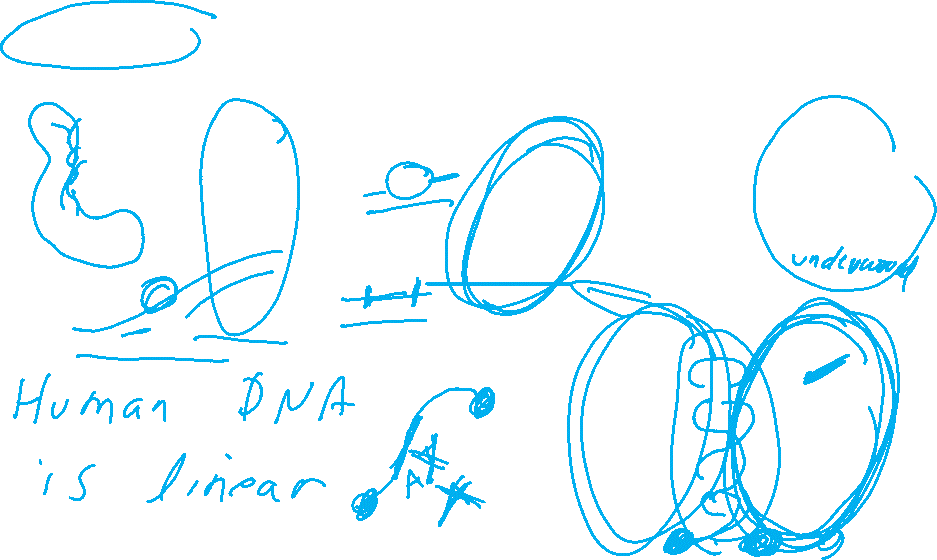 underwood
Human DNA
is linear
A